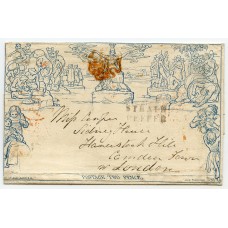 STRATH
PEFFER
Miss Cooper
Sidney House
Haverstock Hill
Camden Town
London
POSTAGE TWO PENCE.